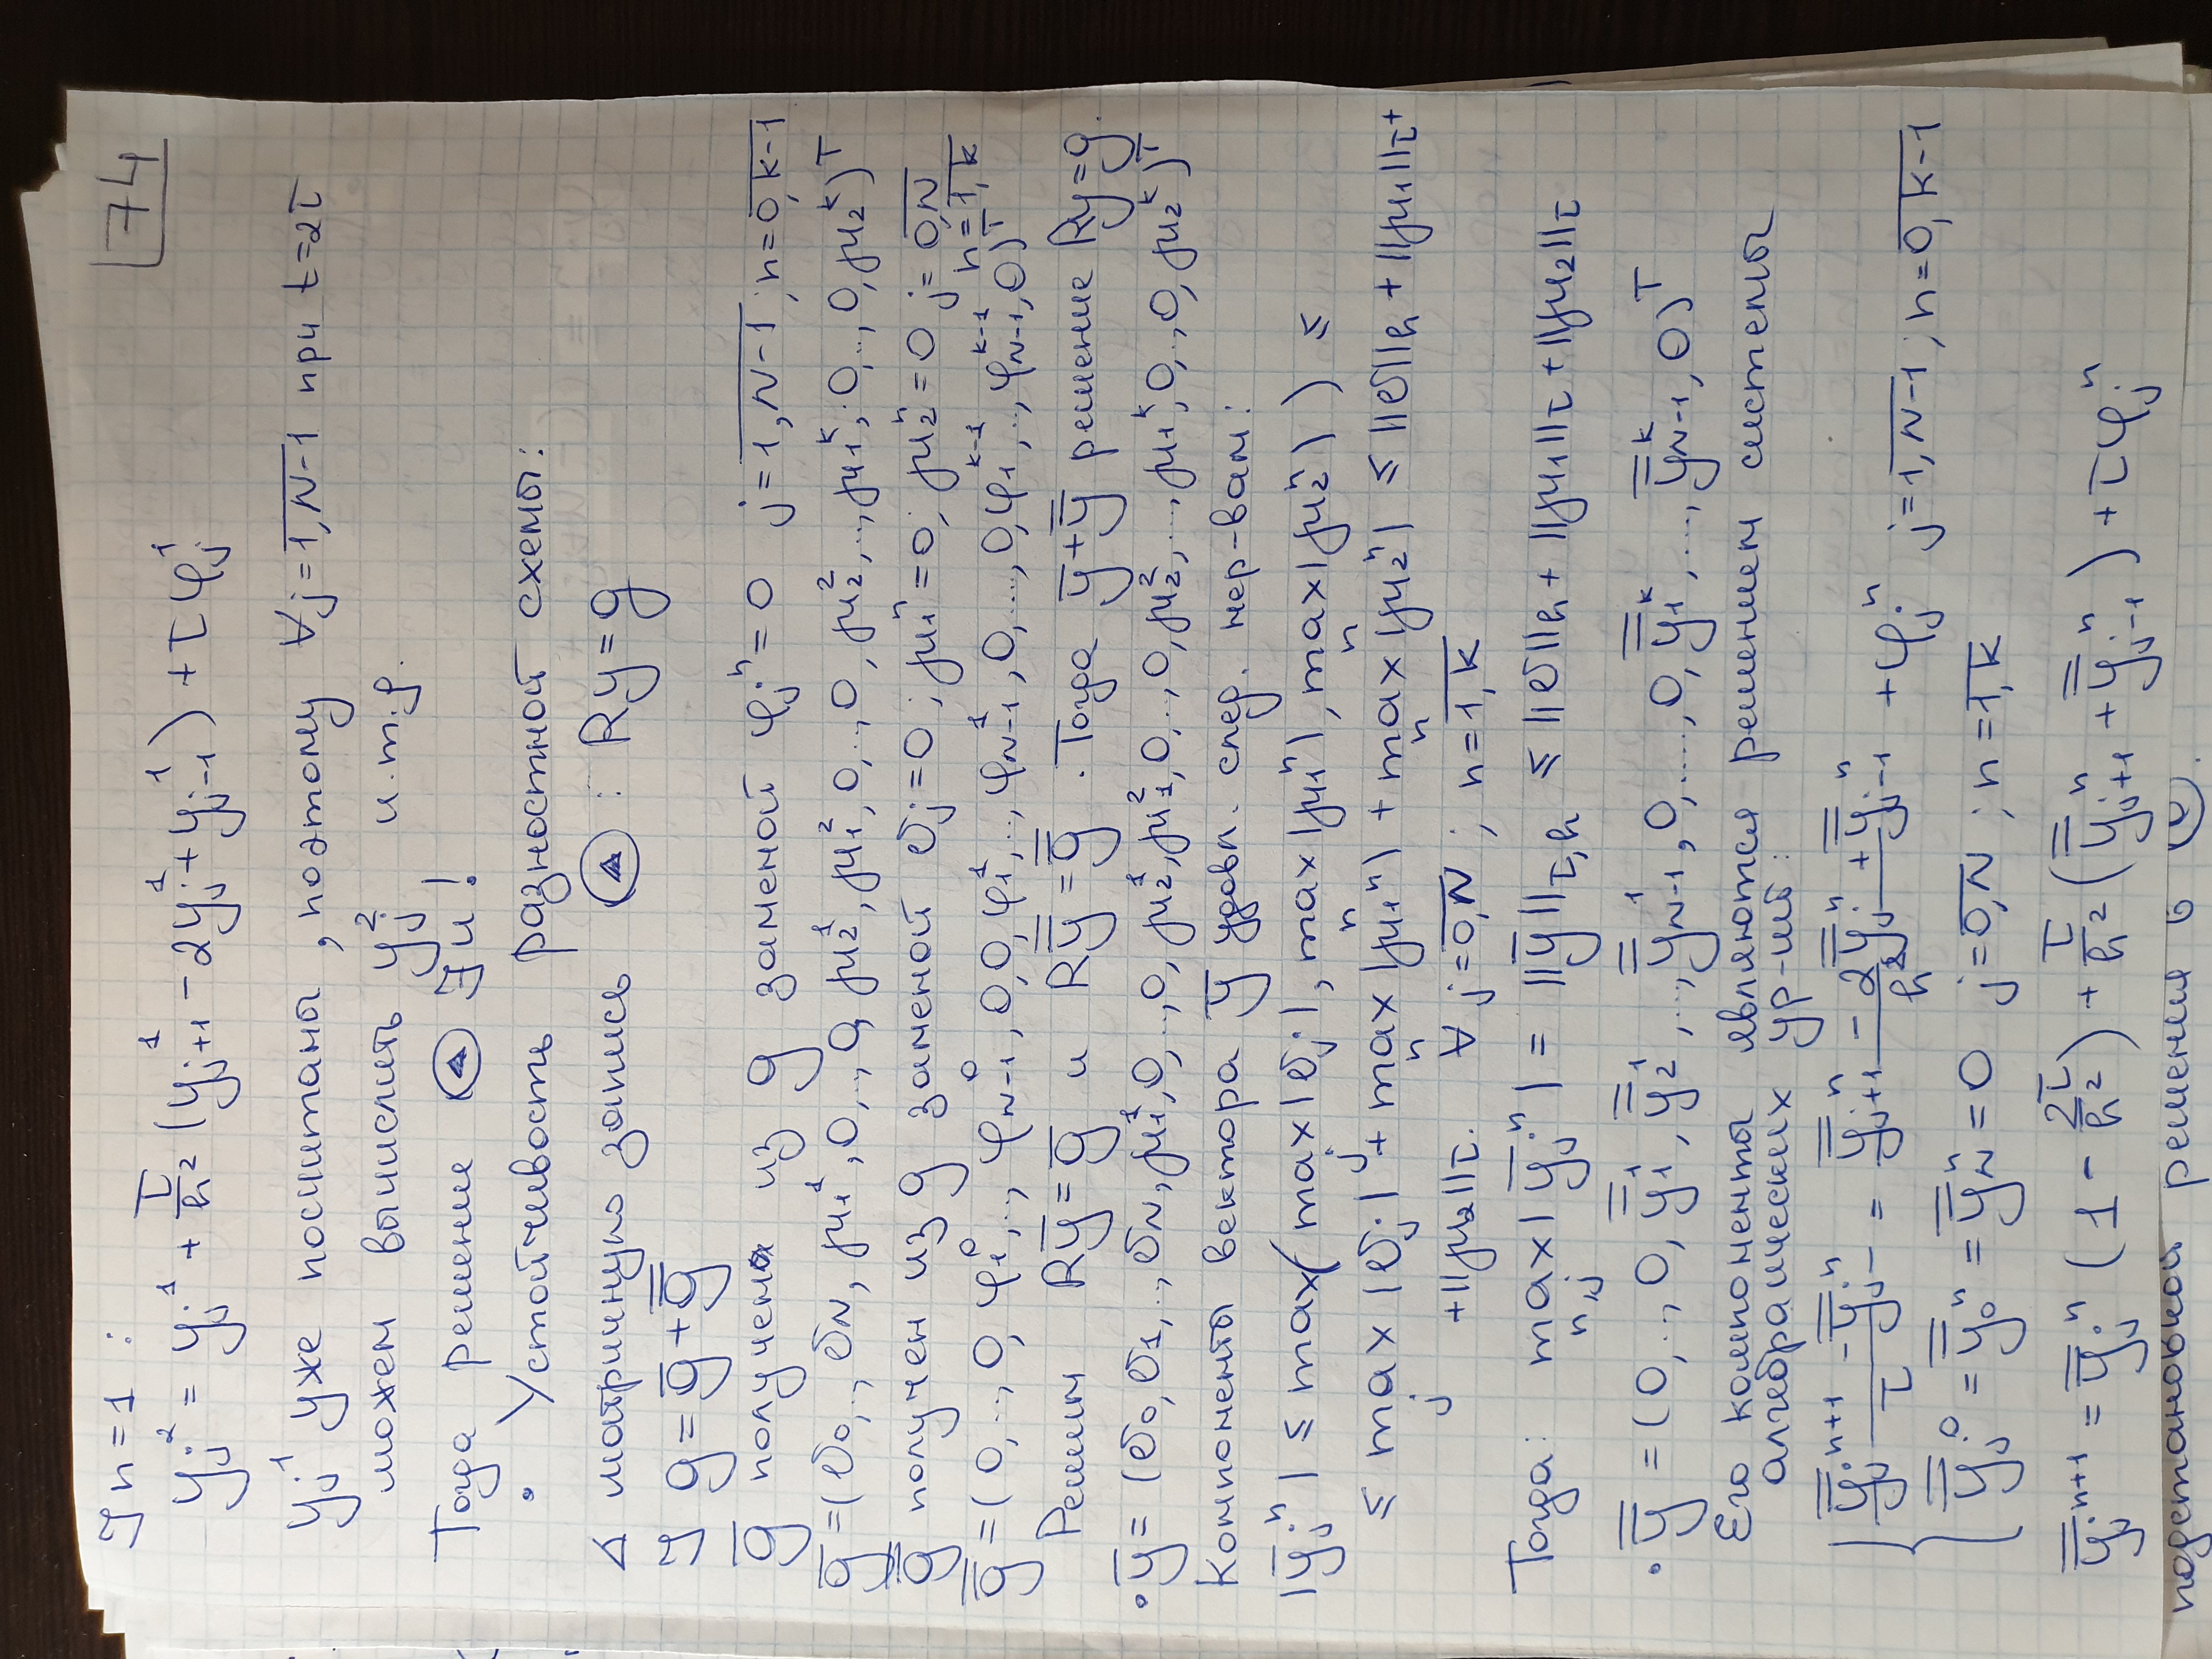 74
] n=1 :
y_j^2 = y_j^1 + τ/h^2 (y_{j+1}^1 - 2y_j^1 + y_{j-1}^1) + τφ_j^1
y_j^1 уже посчитаны, поэтому ∀j=\overline{1,N-1} при t=2τ
можем вычислить y_j^2 и т.д.
Тогда решение (▲) ∃ и !
• Устойчивость разностной схемы:
Δ матричную запись (▲) : Ry=g
] g = \overline{g} + \overline{\overline{g}}
\overline{g} получена из g заменой φ_j^n = 0 j=\overline{1,N-1} ; n=\overline{0,k-1}
\overline{g}=(σ_0,..., σ_N, μ_1^1, 0,..., 0, μ_2^1, μ_1^2, 0,..., 0, μ_2^2,..., μ_1^k, 0,..., 0, μ_2^k)^T
\overline{\overline{g}} получен из g заменой σ_j=0 ; μ_1^n=0; μ_2^n=0 j=\overline{0,N} n=\overline{1,k}
\overline{\overline{g}}=(0,..., 0, φ_1^0,..., φ_{N-1}^0, 0, 0, φ_1^1,..., φ_{N-1}^1, 0,..., 0, φ_1^{k-1},..., φ_{N-1}^{k-1}, 0)^T
Решим R\overline{y}=\overline{g} и R\overline{\overline{y}}=\overline{\overline{g}}. Тогда \overline{y}+\overline{\overline{y}} решение Ry=g.
• \overline{y}=(σ_0, σ_1,..., σ_N, μ_1^1, 0,..., 0, μ_2^1, μ_1^2, 0,..., 0, μ_2^2,..., μ_1^k, 0,..., 0, μ_2^k)^T
Компоненты вектора \overline{y} удовл. след. нер-вам:
|\overline{y}_j^n| ≤ max(max_j|σ_j|, max_n|μ_1^n|, max_n|μ_2^n|) ≤
≤ max_j|σ_j| + max_n|μ_1^n| + max_n|μ_2^n| ≤ ||σ||_h + ||μ_1||_τ +
+ ||μ_2||_τ. ∀ j=\overline{0,N} ; n=\overline{1,k}
Тогда: max_{n,j}|\overline{y}_j^n| = ||\overline{y}||_{τ,h} ≤ ||σ||_h + ||μ_1||_τ + ||μ_2||_τ
• \overline{\overline{y}}=(0,..., 0, \overline{\overline{y}}_1^1, \overline{\overline{y}}_2^1,..., \overline{\overline{y}}_{N-1}^1, 0,......, 0, \overline{\overline{y}}_1^k,..., \overline{\overline{y}}_{N-1}^k, 0)^T
Его компоненты являются решением системы
алгебраических ур-ний:
{ (\overline{\overline{y}}_j^{n+1} - \overline{\overline{y}}_j^n)/τ = (\overline{\overline{y}}_{j+1}^n - 2\overline{\overline{y}}_j^n + \overline{\overline{y}}_{j-1}^n)/h^2 + φ_j^n j=\overline{1,N-1} ; n=\overline{0,k-1}
\overline{\overline{y}}_j^0 = \overline{\overline{y}}_0^n = \overline{\overline{y}}_N^n = 0 j=\overline{0,N} ; n=\overline{1,k}
\overline{\overline{y}}_j^{n+1} = \overline{\overline{y}}_j^n (1 - 2τ/h^2) + τ/h^2 (\overline{\overline{y}}_{j+1}^n + \overline{\overline{y}}_{j-1}^n) + τφ_j^n
подстановкой решения в